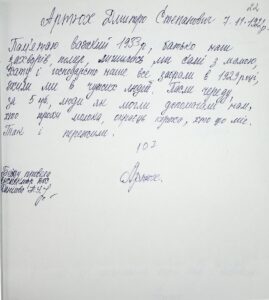 22
Артюх Дмитро Степанович 7.11.1921р.
Пам'ятаю важкий 1933р, батько наш
захворів, помер, лишились ми самі з мамою,
хату і господарство наше все забрали в 1929році,
жили ми в чужих людей. Пасли череду,
за 5 люди як могли допомагали нам,
хто трохи молока, окраєць хліба, хто що міг.
Так і пережили.
Артюх.